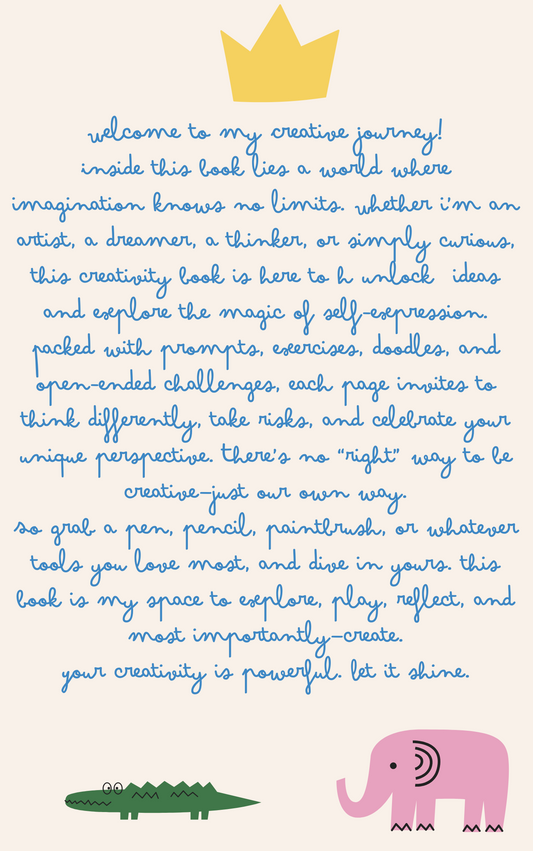 welcome to my creative journey!
inside this book lies a world where
imagination knows no limits. whether i'm an
artist, a dreamer, a thinker, or simply curious,
this creativity book is here to h unlock ideas
and explore the magic of self-expression.
packed with prompts, exercises, doodles, and
open-ended challenges, each page invites to
think differently, take risks, and celebrate your
unique perspective. there's no “right” way to be
creative—just our own way.
so grab a pen, pencil, paintbrush, or whatever
tools you love most, and dive in yours. this
book is my space to explore, play, reflect, and
most importantly—create.
your creativity is powerful. let it shine.